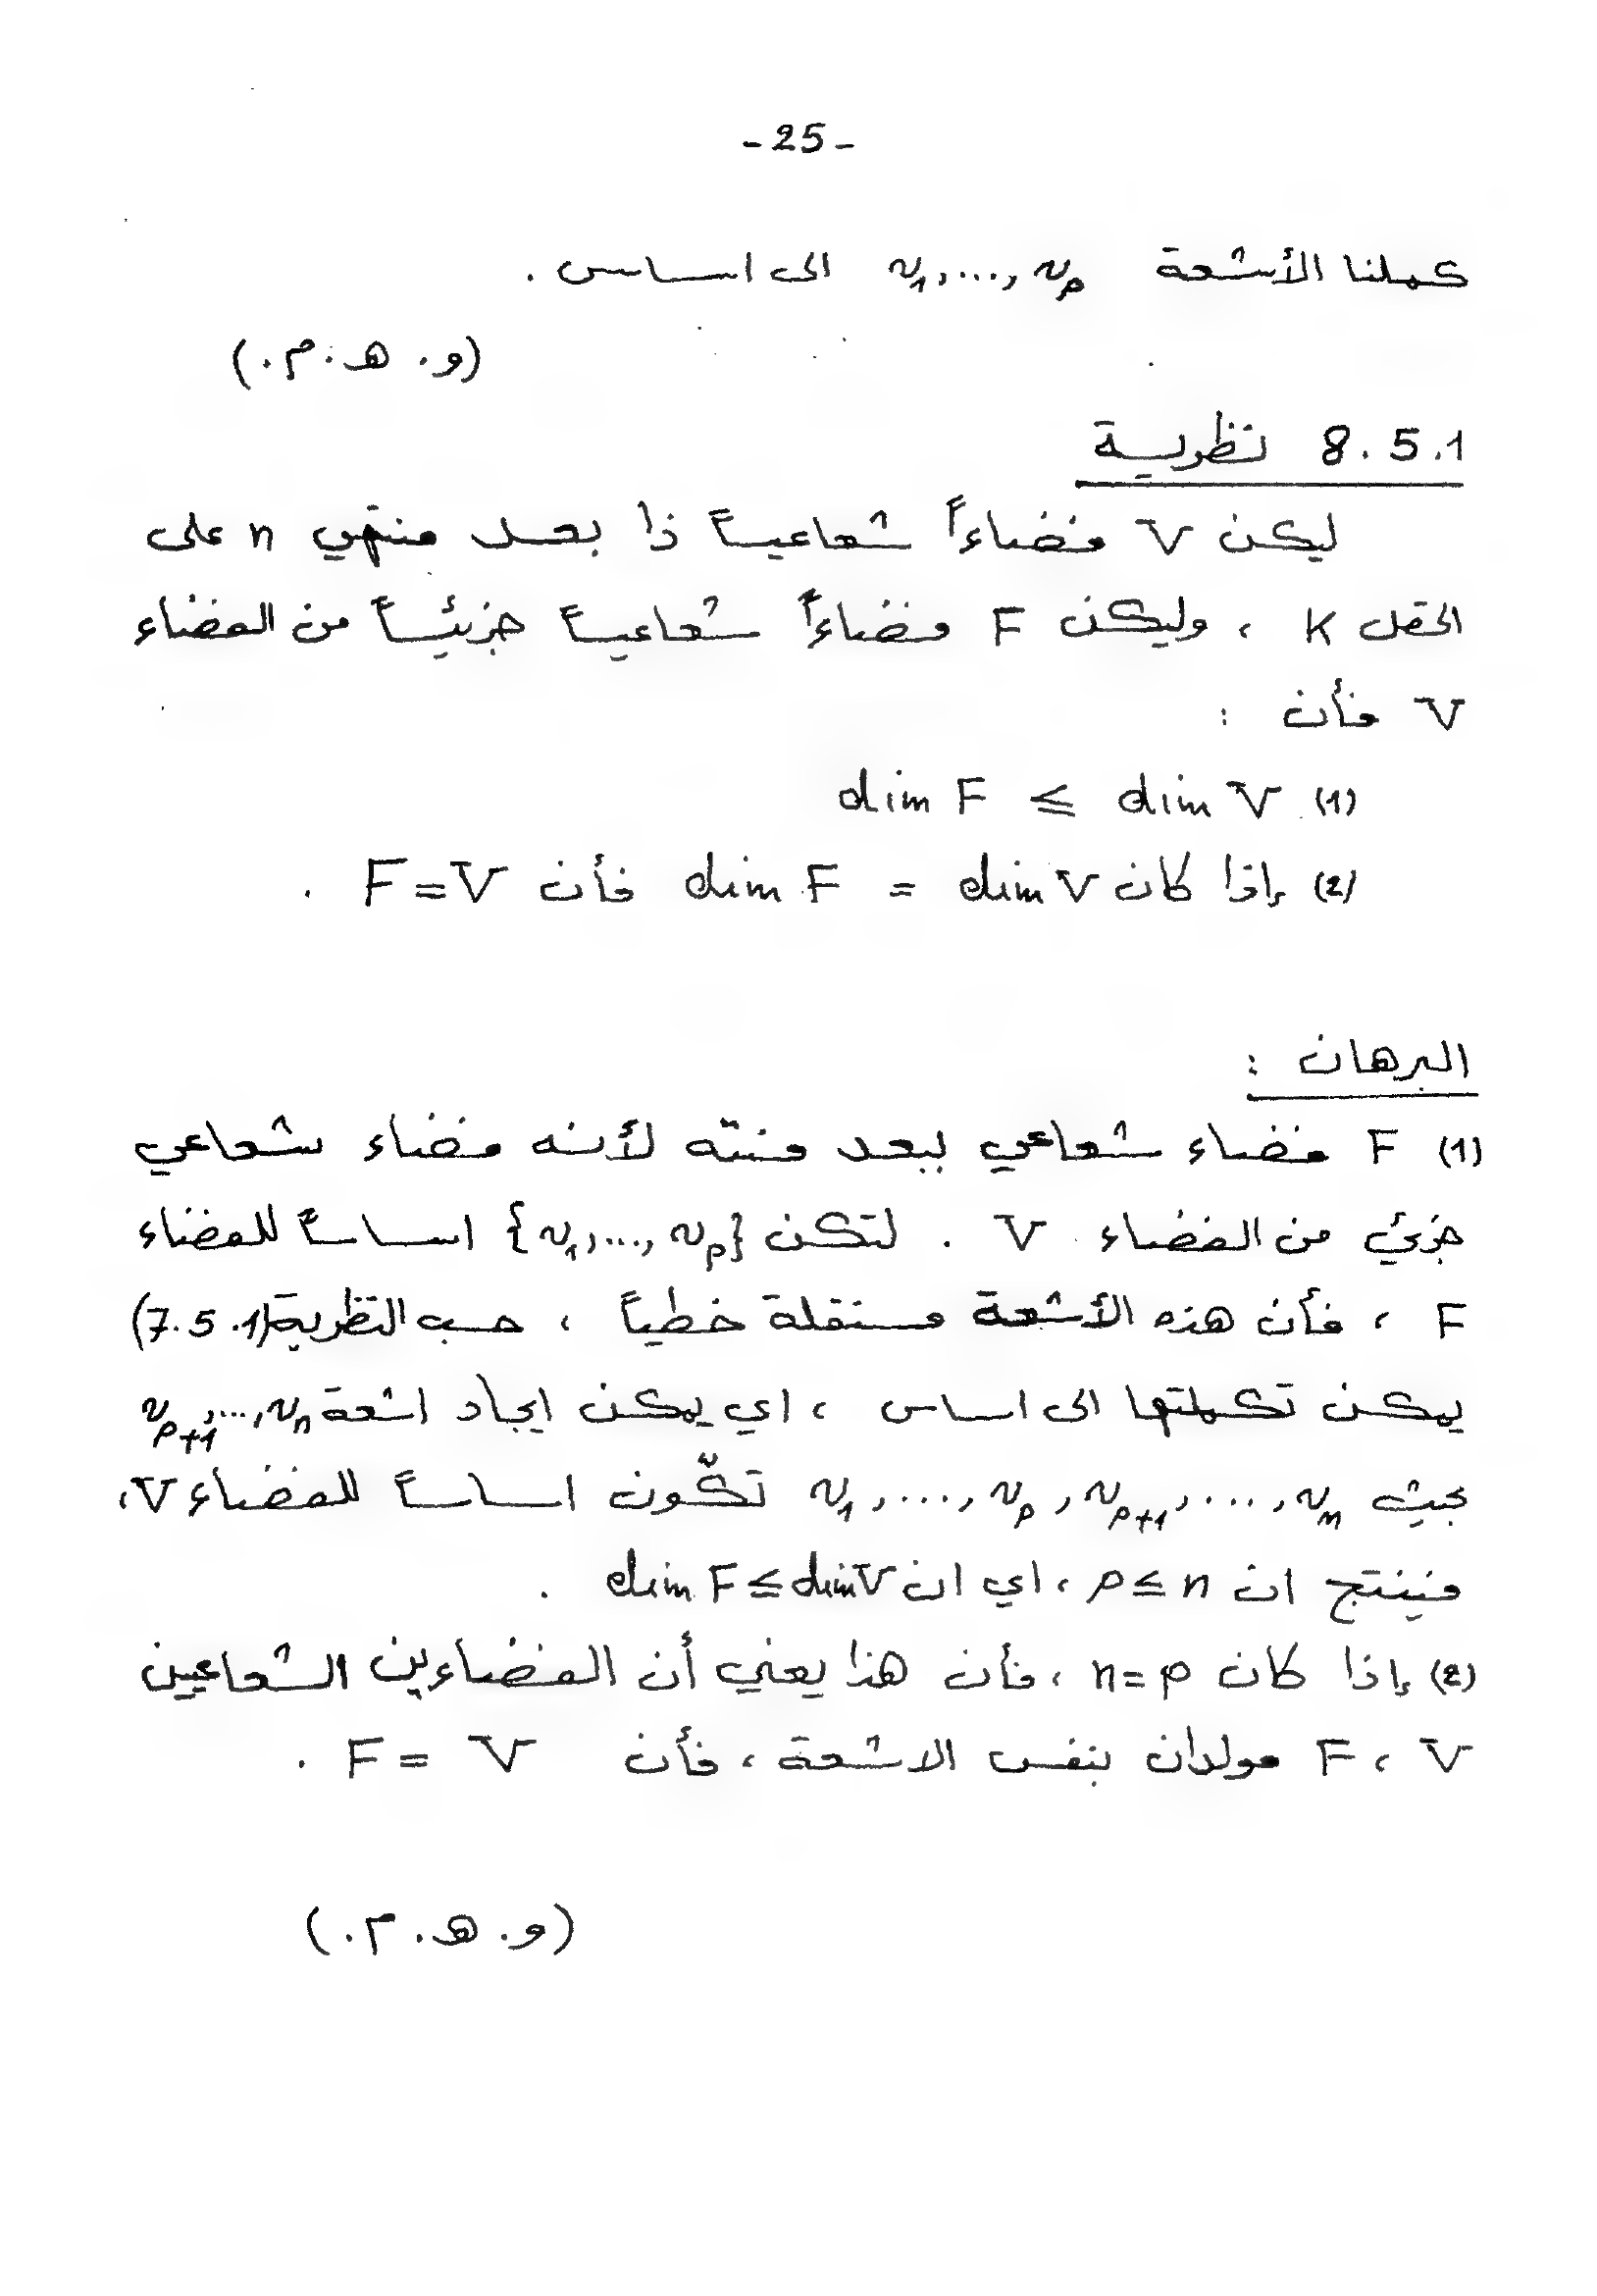 - 25 -
كملنا الأشعة v₁,...,vₚ الى اساس .
(و. هـ. م.)
8.5.1 نظرية
ليكن V فضاءاً شعاعياً ذا بعد منتهي n على
الحقل K ، وليكن F فضاءاً شعاعياً جزئياً من الفضاء
V فأن :
(1) dim F ≤ dim V
(2) إذا كان dim F = dim V فأن F = V .
البرهان :
(1) F فضاء شعاعي ببعد منته لأنه فضاء شعاعي
جزئي من الفضاء V . لتكن {v₁,...,vₚ} اساساً للفضاء
F ، فأن هذه الأشعة مستقلة خطياً ، حسب النظرية (7.5.1)
يمكن تكملتها الى اساس ، اي يمكن ايجاد اشعة vₚ₊₁,...,vₙ
بحيث v₁,...,vₚ,vₚ₊₁,...,vₙ تكّون اساساً للفضاء V ،
فينتج ان p ≤ n ، اي ان dim F ≤ dim V .
(2) إذا كان n = p ، فأن هذا يعني أن الفضاءين الشعاعيين
V ، F مولدان بنفس الاشعة ، فأن F = V .
(و. هـ. م.)